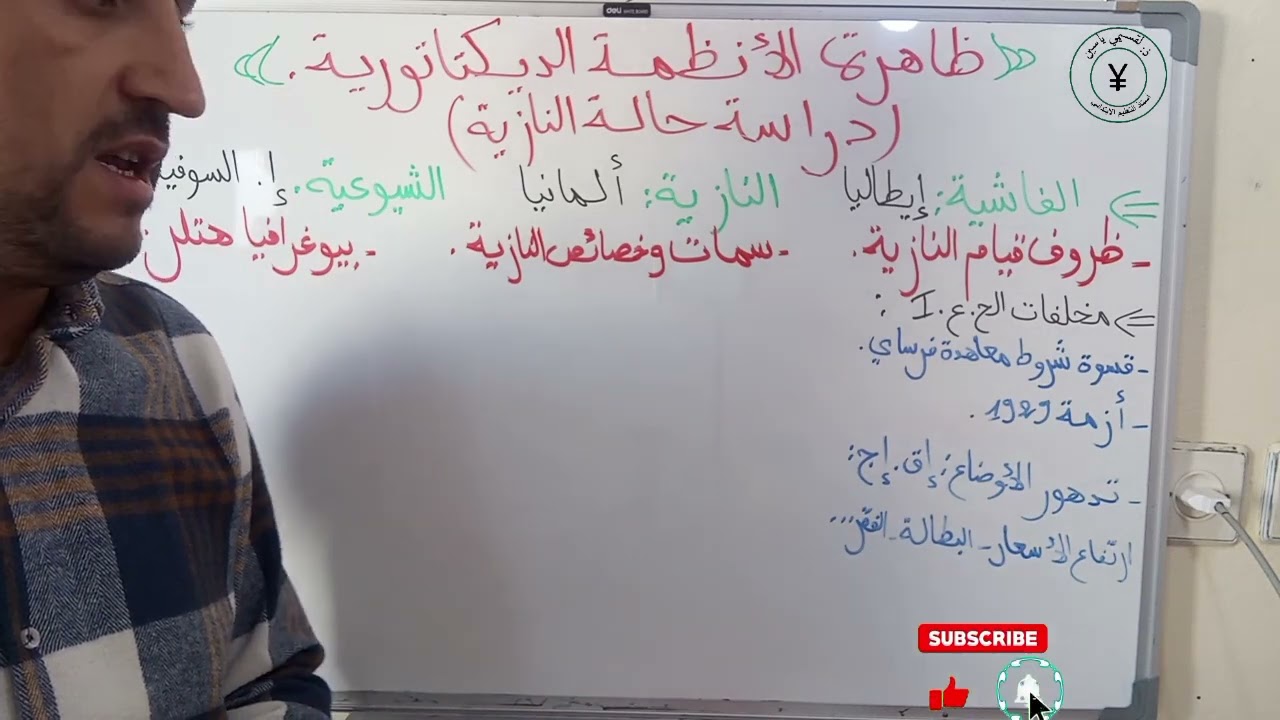 deli
« ظاهرة الأنظمة الديكتاتورية. »
(دراسة حالة النازية)
الفاشية: إيطاليا النازية: ألمانيا الشيوعية: إ. السوفي
- ظروف قيام النازية. - سمات وخصائص النازية. - بيوغرافيا هتلر.
مخلفات الح.ع.I :
- قسوة شروط معاهدة فرساي.
- أزمة 1929.
- تدهور الأوضاع: إق. إج:
ارتفاع الأسعار - البطالة - الفقر...
¥
أستاذ التعليم الابتدائي
SUBSCRIBE